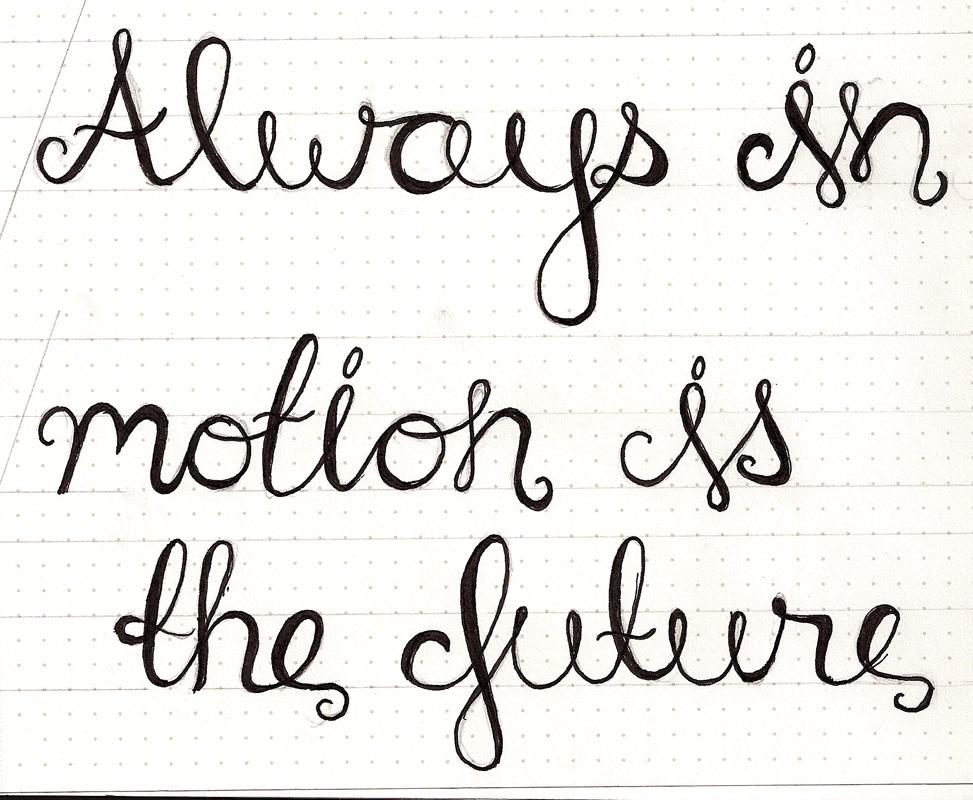 Always in
motion is
the future